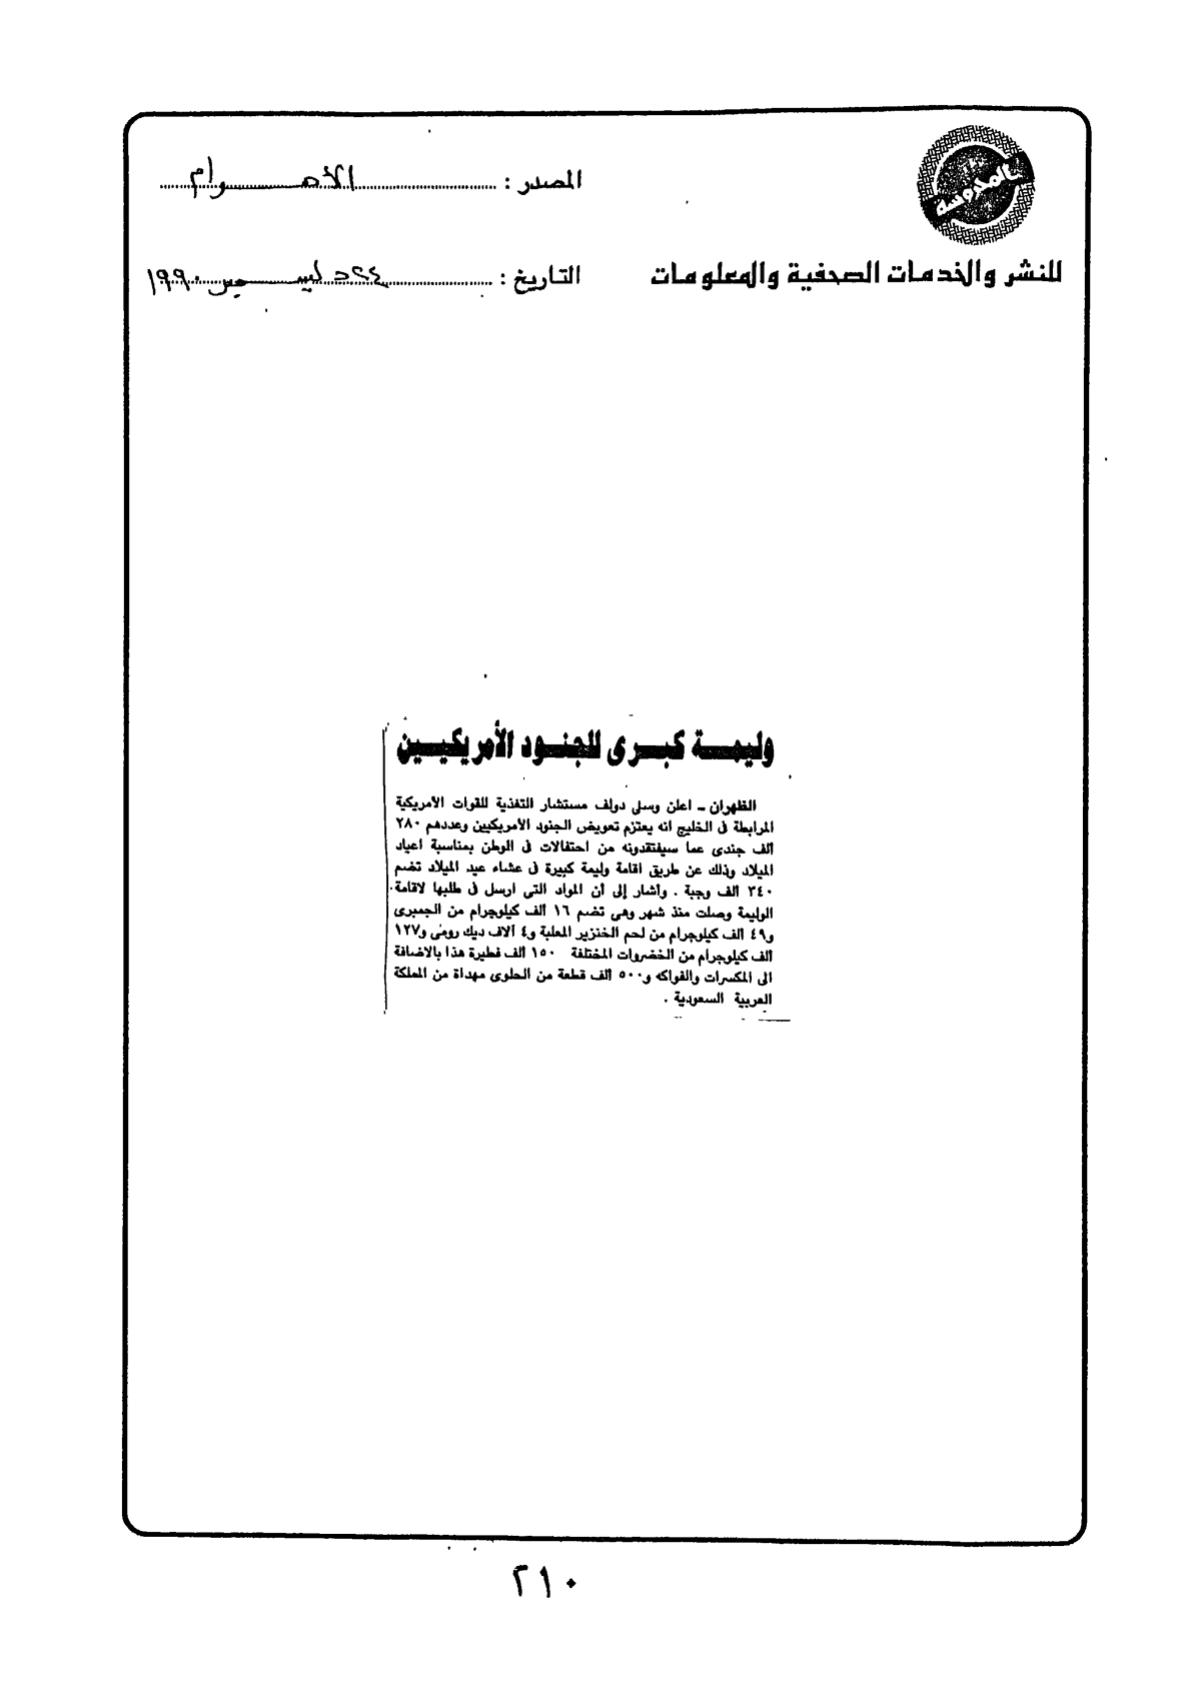 المصدر : الأهرام
للنشر والخدمات الصحفية والمعلومات
التاريخ : ٢٤ ديسمبر ١٩٩٠
وليمة كبرى للجنود الأمريكيين
الظهران ـ اعلن وسلى دولف مستشار التغذية للقوات الأمريكية
المرابطة فى الخليج انه يعتزم تعويض الجنود الأمريكيين وعددهم ٢٨٠
ألف جندى عما سيفتقدونه من احتفالات فى الوطن بمناسبة اعياد
الميلاد وذلك عن طريق اقامة وليمة كبيرة فى عشاء عيد الميلاد تضم
٣٤٠ الف وجبة . واشار إلى أن المواد التى ارسل فى طلبها لاقامة
الوليمة وصلت منذ شهر وهى تضم ١٦ ألف كيلوجرام من الجمبرى
و٤٩ ألف كيلوجرام من لحم الخنزير المعلبة و٤ آلاف ديك رومى و١٢٧
ألف كيلوجرام من الخضروات المختلفة ١٥٠ ألف فطيرة هذا بالاضافة
الى المكسرات والفواكه و٥٠٠ ألف قطعة من الحلوى مهداة من المملكة
العربية السعودية .
٢١٠